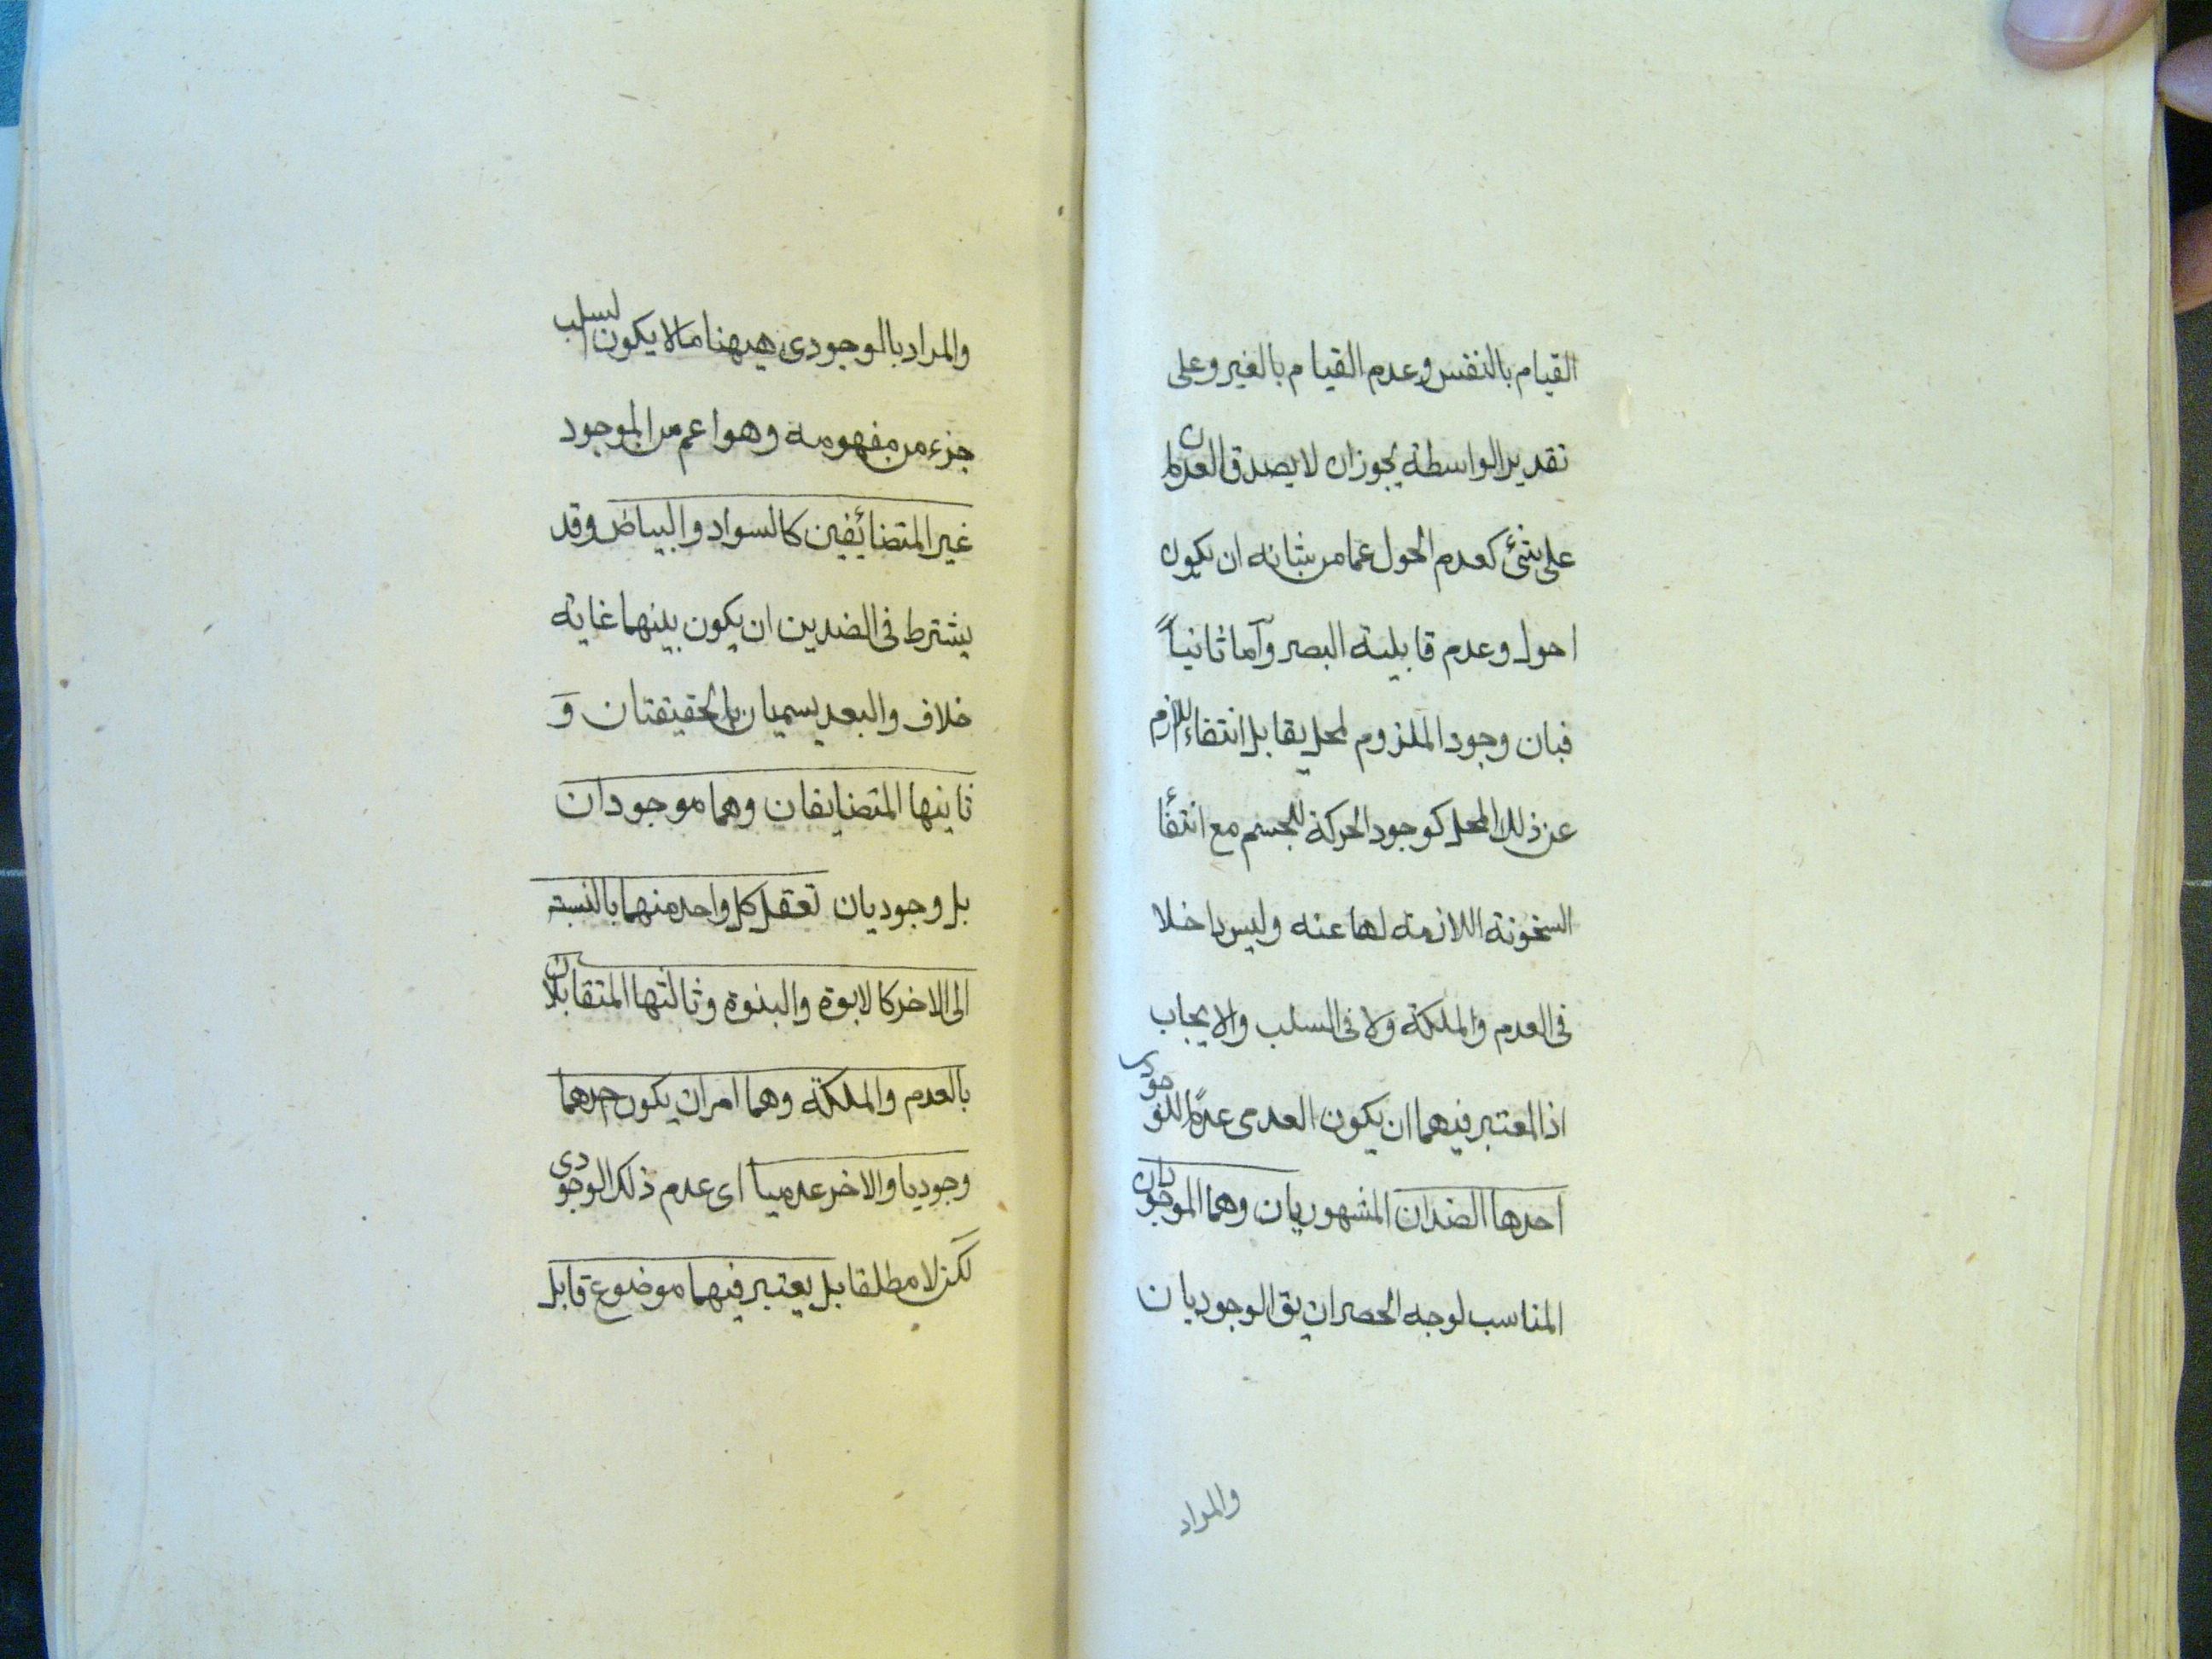 القيام بالنفس وعدم القيام بالغير وعلى
تقدير الواسطة يجوز ان لا يصدق العدمان
على شئ كعدم الحول عما من شانه ان يكون
احول وعدم قابلية البصر وآما ثانياً
فبان وجود الملزوم لمحل يقابل انتفاء اللازم
عن ذلك المحل كوجود الحركة للجسم مع انتفأ
السخونة اللازمة لها عنه وليس داخلا
فى العدم والملكة ولا فى السلب والايجاب
اذ المعتبر فيهما ان يكون العدمى عدماً للوجودى
احدها الضدان المشهوريان وهما الموجودان
المناسب لوجه الحصر ان يق الوجوديان
والمراد
والمراد بالوجودى هيهنا ما لا يكون لسلب
جزء من مفهومه وهو اعم من الموجود
غير المتضائفين كالسواد والبياض وقد
يشترط فى الضدين ان يكون بينهما غاية
خلاف والبعد يسميان بالحقيقتان وَ
ثانيها المتضايفان وهما موجودان
بل وجوديان تعقل كل واحد منهما بالنسبة
الى الاخر كالابوة والبنوة وثالثها المتقابلان
بالعدم والملكة وهما امران يكون احدهما
وجوديا والاخر عدميا اى عدم ذلك الوجودى
لكن لا مطلقا بل يعتبر فيهما موضوع قابل